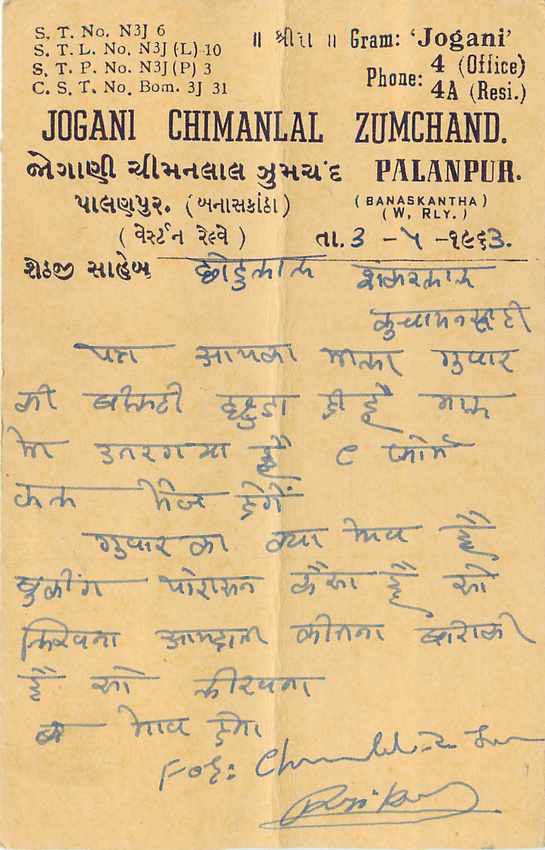 S. T. No. N3J 6
S. T. L. No. N3J (L) 10
S. T. P. No. N3J (P) 3
C. S. T. No. Bom. 3J 31
॥ श्री ॥
Gram: 'Jogani'
Phone: 4 (Office)
4A (Resi.)
JOGANI CHIMANLAL ZUMCHAND.
જોગાણી ચીમનલાલ ઝુમચંદ PALANPUR.
પાલણપુર. (બનાસકાંઠા) (BANASKANTHA)
(W, RLY.)
(વેસ્ટર્ન રેલ્વે) તા. 3 - ५ -૧૯૬3.
શેઠજી સાહેબ छोटुलाल शंकरलाल
कुचामनसीटी
पत्र आपका मीला गुवार
की बील्टी छुडा दी है माल
मे उतर गया है C फोर्म
कल भेज देगें
गुवार का क्या भाव है
बुकींग पोरासन कैसा है सो
लिखना आमदानी कीतना बाकी
है सो लीखना
भाव
For: Chimanlal